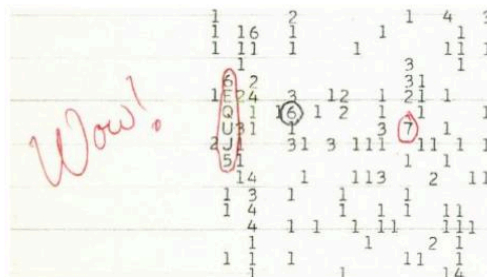 1 2 1 4 3
1 16 1 1 1
1 11 1 1 11 1
1 3 1
6 2 31
1 E 24 3 12 1 21 1
Wow! Q 1 16 1 2 1 1 1
U 31 1 3 7
2 J 1 31 3 111 11 1 1
5 1 1 1
14 1 113 2 11
1 3 1 1 1
1 4 1 1 1 11
4 1 1 1 11 111
1 1 2 1
1 1 1 11 1
1 1 14